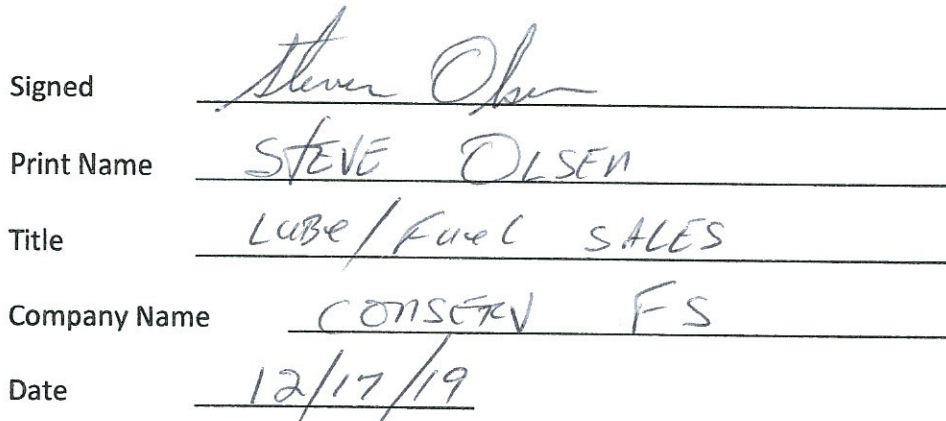 Signed Steven Olsen
Print Name STEVE OLSEN
Title Lube/Fuel SALES
Company Name CONSERV FS
Date 12/17/19